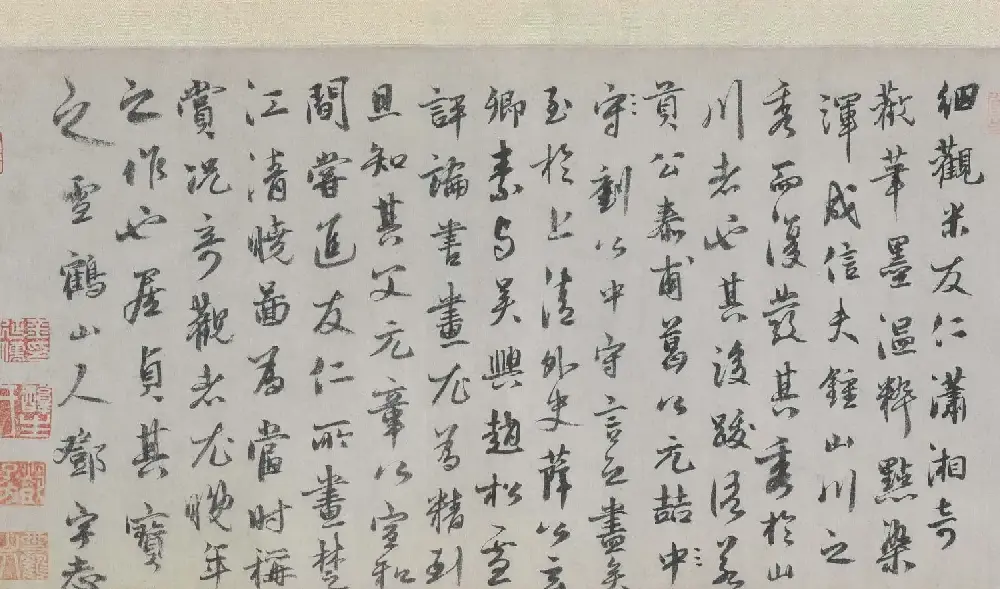 細觀米友仁瀟湘奇
觀筆墨温粹點染
渾成信夫鍾山川之
秀而復發其秀於山
川者也其後跋語若
貢公泰甫葛公元喆中
守劉公中守言之盡矣
至於上清外史薛公玄
卿素与吴興趙松雪
評論書畫尤為精到
且知其父元章以宣和
間嘗進友仁所畫楚
江清曉圖為當時稱
賞况奇觀者尤晚年
之作也居貞其寶
之雲鶴山人鄧宇志